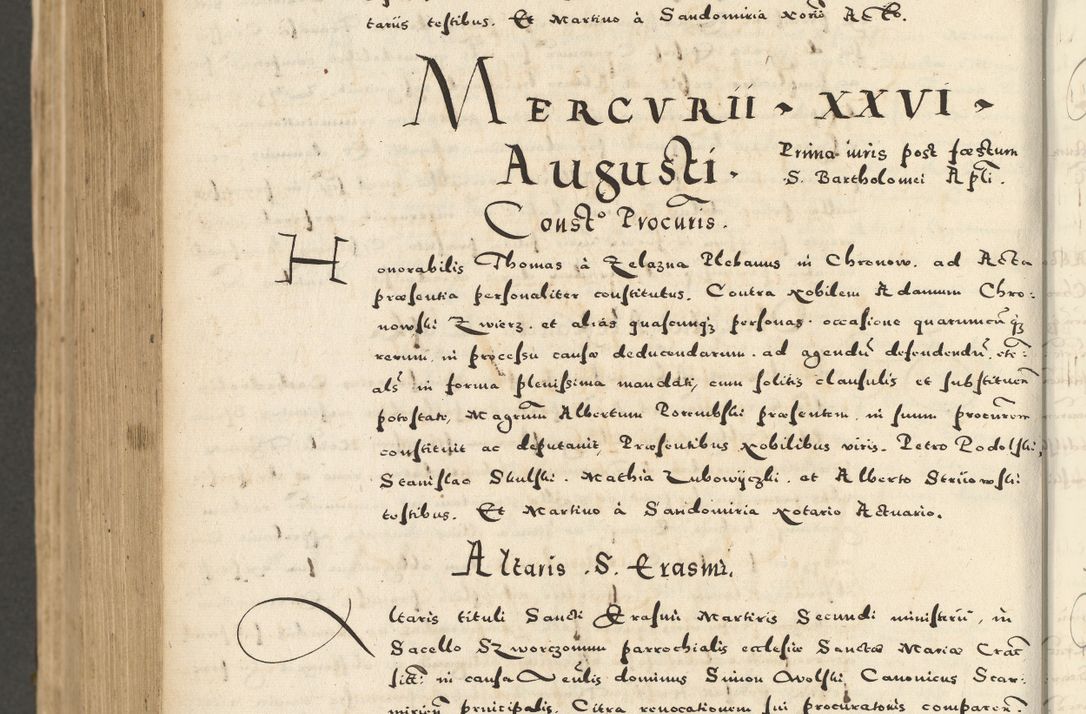 tariis testibus. Et Martino à Sandomiria Norio Acto.
MERCVRII XXVI
AUgusti.
Prima iuris post fœstum
S. Bartholomei Apli.
Const° Procuris.
Honorabilis Thomas à Zelazna Plebanus in Chronow. ad Acta
præsentia personaliter constitutus. Contra Nobilem Adamum Chro:
nowski Zwierz. et alias quascunq; personas. occasione quarumcunq;
rerum, in processu causæ deducendarum. ad agendu defendendu, etc:
als in forma plenissima mandati, cum solitis clausulis et substituen
potestate, Magrum Albertum Porembski præsentem, in suum procurem
constituit ac deputauit, Præsentibus Nobilibus viris. Petro Podolski,
Stanislao Skulski. Mathia Lubowyczki. et Alberto Striiowski
testibus. Et Martino à Sandomiria Notario Actuario.
Altaris S. Erasmi.
Altaris tituli Sancti Erasmi Martiris Secundi ministerii, in
Sacello Szworczonum parrochialis ecclesiæ Sanctæ Mariæ Crac
sitt: in causa Veulis dominus Simon Wolski Canonicus Scar:
mirien principalis. Citra reuocationem sui procuratoris comparen